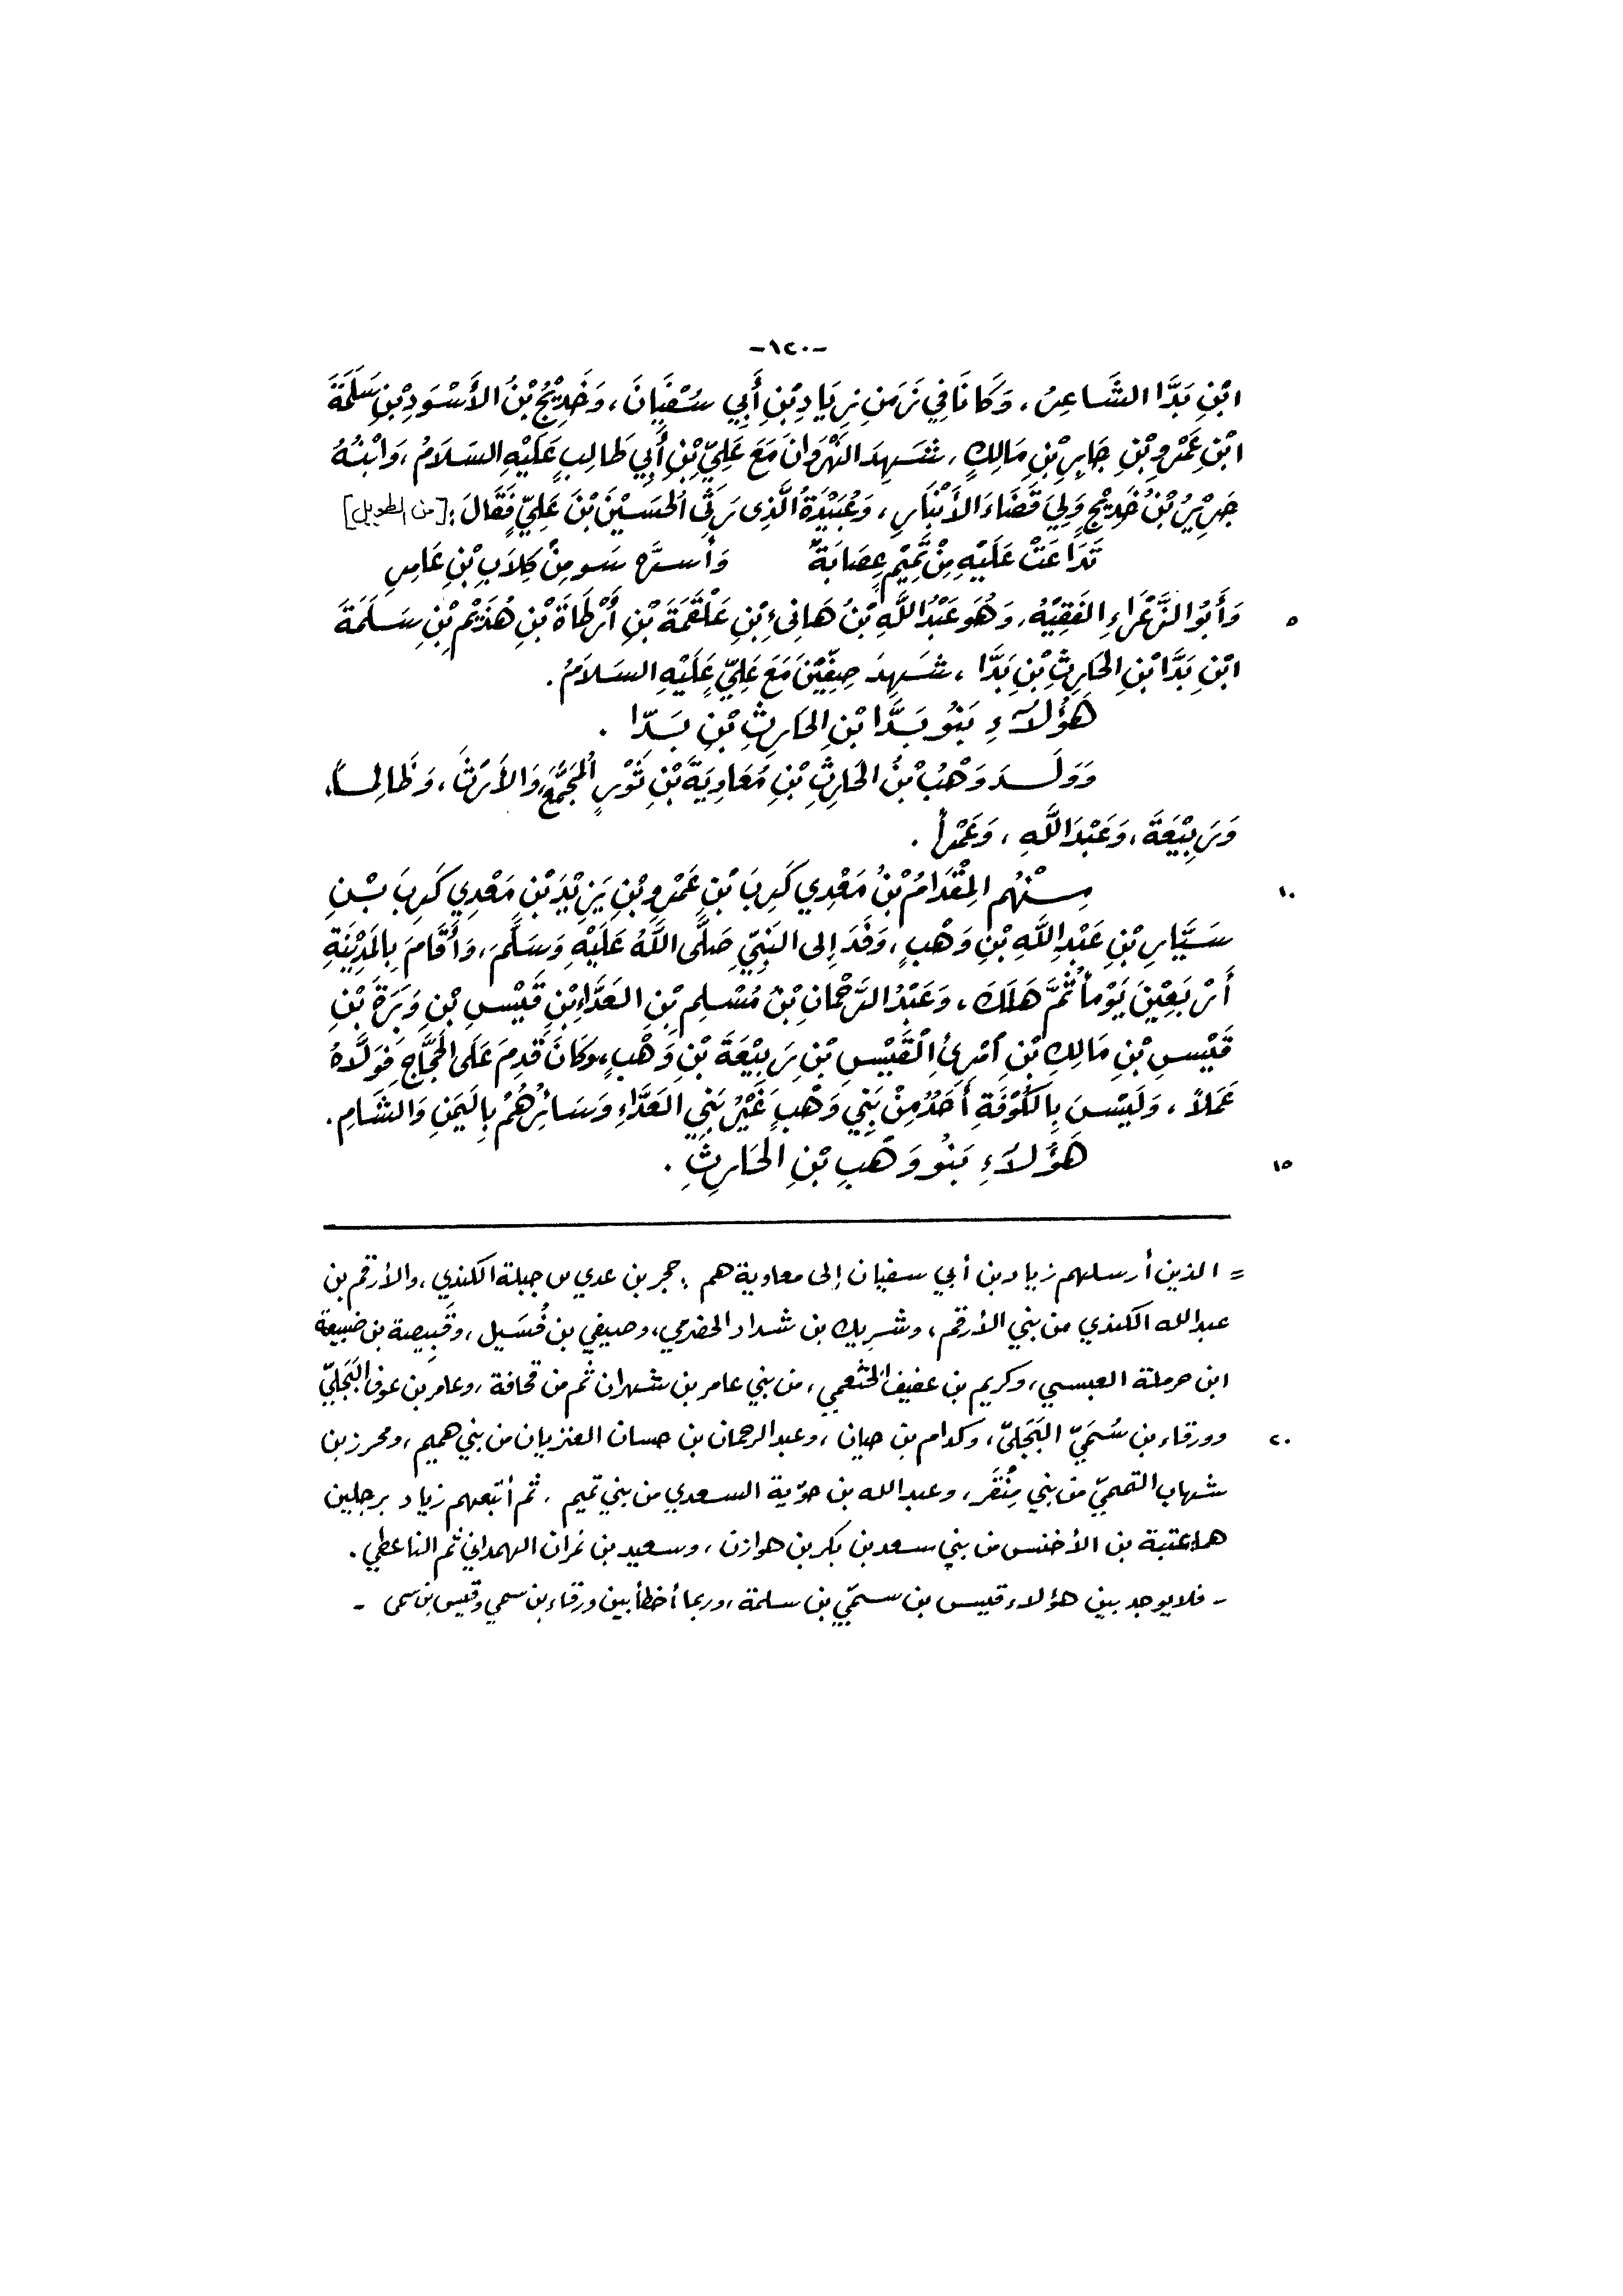 -١٢٠-
ابْنِ بَدَّا الشَّاعِرُ، وَكَانَا فِي زَمَنِ زِيَادِ بْنِ أَبِي سُفْيَانَ، وَخَدِيْجُ بْنُ الأَسْوَدِ بْنِ سَلَمَةَ
ابْنِ عَمْرِو بْنِ جَابِرِ بْنِ مَالِكٍ، شَهِدَ النَّهْرَوَانَ مَعَ عَلِيِّ بْنِ أَبِي طَالِبٍ عَلَيْهِ السَّلَامُ، وَابْنُهُ
جَرِيْرُ بْنُ خَدِيْجٍ وَلِيَ قَضَاءَ الأَنْبَارِ، وَعُبَيْدَةُ الَّذِى رَثَى الحُسَيْنَ بْنَ عَلِيٍّ فَقَالَ: [من الطويل]
تَدَاعَتْ عَلَيْهِ مِنْ تَمِيْمٍ عِصَابَةٌ وَأُسْرَةُ سَوءٍ مِنْ كِلَابِ بْنِ عَامِرِ
٥ وَأَبُو الزَّعْرَاءِ الفَقِيْهُ، وَهُوَ عَبْدُ اللَّهِ بْنُ هَانِىءِ بْنِ عَلْقَمَةَ بْنِ أَرْطَاةَ بْنِ هُذَيْمِ بْنِ سَلَمَةَ
ابْنِ بَدَّا بْنِ الحَارِثِ بْنِ بَدَّا، شَهِدَ صِفِّيْنَ مَعَ عَلِيٍّ عَلَيْهِ السَّلَامُ.
هَؤُلَاءِ بَنُو بَدَّا بْنِ الحَارِثِ بْنِ بَدَّا.
وَوَلَدَ وَهْبُ بْنُ الحَارِثِ بْنِ مُعَاوِيَةَ بْنِ ثَوْرٍ المُجَمَّعَ، وَالأَرَتَّ، وَظَالِماً،
وَرَبِيْعَةَ، وَعَبْدَ اللَّهِ، وَعَمْراً.
١٠ مِنْهُم المِقْدَامُ بْنُ مَعْدِي كَرِبَ بْنِ عَمْرِو بْنِ يَزِيْدَ بْنِ مَعْدِي كَرِبَ بْنِ
سَيَّارِ بْنِ عَبْدِ اللَّهِ بْنِ وَهْبٍ، وَفَدَ إِلى النَّبِيِّ صَلَّى اللَّهُ عَلَيْهِ وَسَلَّمَ، وَأَقَامَ بِالمَدِيْنَةِ
أَرْبَعِيْنَ يَوْماً ثُمَّ هَلَكَ، وَعَبْدُ الرَّحْمَانِ بْنُ مُسْلِمِ بْنِ العَدَّاءِ بْنِ قَيْسِ بْنِ وَبَرَةَ بْنِ
قَيْسِ بْنِ مَالِكِ بْنِ امْرِئِ القَيْسِ بْنِ رَبِيْعَةَ بْنِ وَهْبٍ، وَكَانَ قَدِمَ عَلَى الحَجَّاجِ فَوَلَّاهُ
عَمَلاً، وَلَيْسَ بِالكُوْفَةِ أَحَدٌ مِنْ بَنِي وَهْبٍ غَيْرُ بَنِي العَدَّاءِ وَسَائِرُهُمْ بِاليَمَنِ وَالشَّامِ.
١٥ هَؤُلَاءِ بَنُو وَهْبِ بْنِ الحَارِثِ.
= الذين أرسلهم زياد بن أبي سفيان إلى معاوية هم: حجر بن عدي بن جبلة الكندي، والأرقم بن
عبدالله الكندي من بني الأرقم، وشريك بن شداد الحضرمي، وصيفي بن فُسَيل، وقَبِيصة بن ضبيعة
ابن حرملة العبسي، وكريم بن عفيف الخثعمي، من بني عامر بن شهران ثم من قحافة، وعامر بن عوف البَجَليّ
٢٠ وورقاء بن سُمَيّ البَجَليّ، وكدام بن حيان، وعبدالرحمان بن حسان العنزيان من بني هميم، ومحرز بن
شهاب التميميّ من بني مِنْقَر، وعبدالله بن حوّية السعدي من بني تميم، ثم أتبعهم زياد برجلين
هما عتبة بن الأخنس من بني سعد بن بكر بن هوازن، وسعيد بن نمران الهمداني ثم الناعطي.
- فلا يوجد بين هؤلاء قيس بن سميّ بن سلمة، وربما أخطأ بين ورقاء بن سمي وقيس بن سمى -